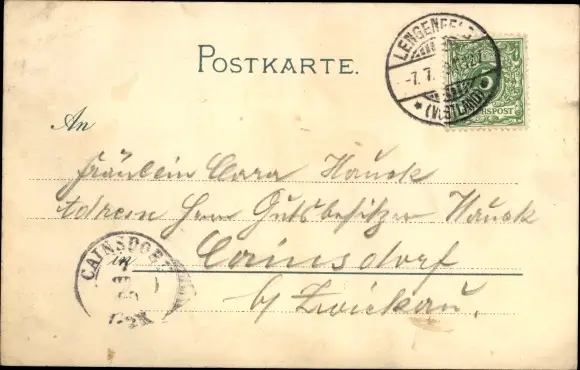 POSTKARTE.
LENGENFELD
-7.7.
* (VOGTLAND)
REICHSPOST
An
Fräulein Clara Hauck
Adr. Herrn Gutsbesitzer Hauck
in Cainsdorf
b/ Zwickau.
CAINSDORF